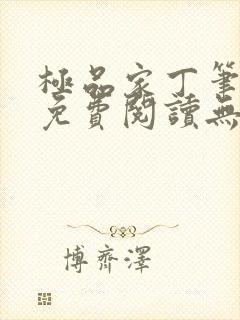 極品家丁筆
免費閱讀無
博齊澤